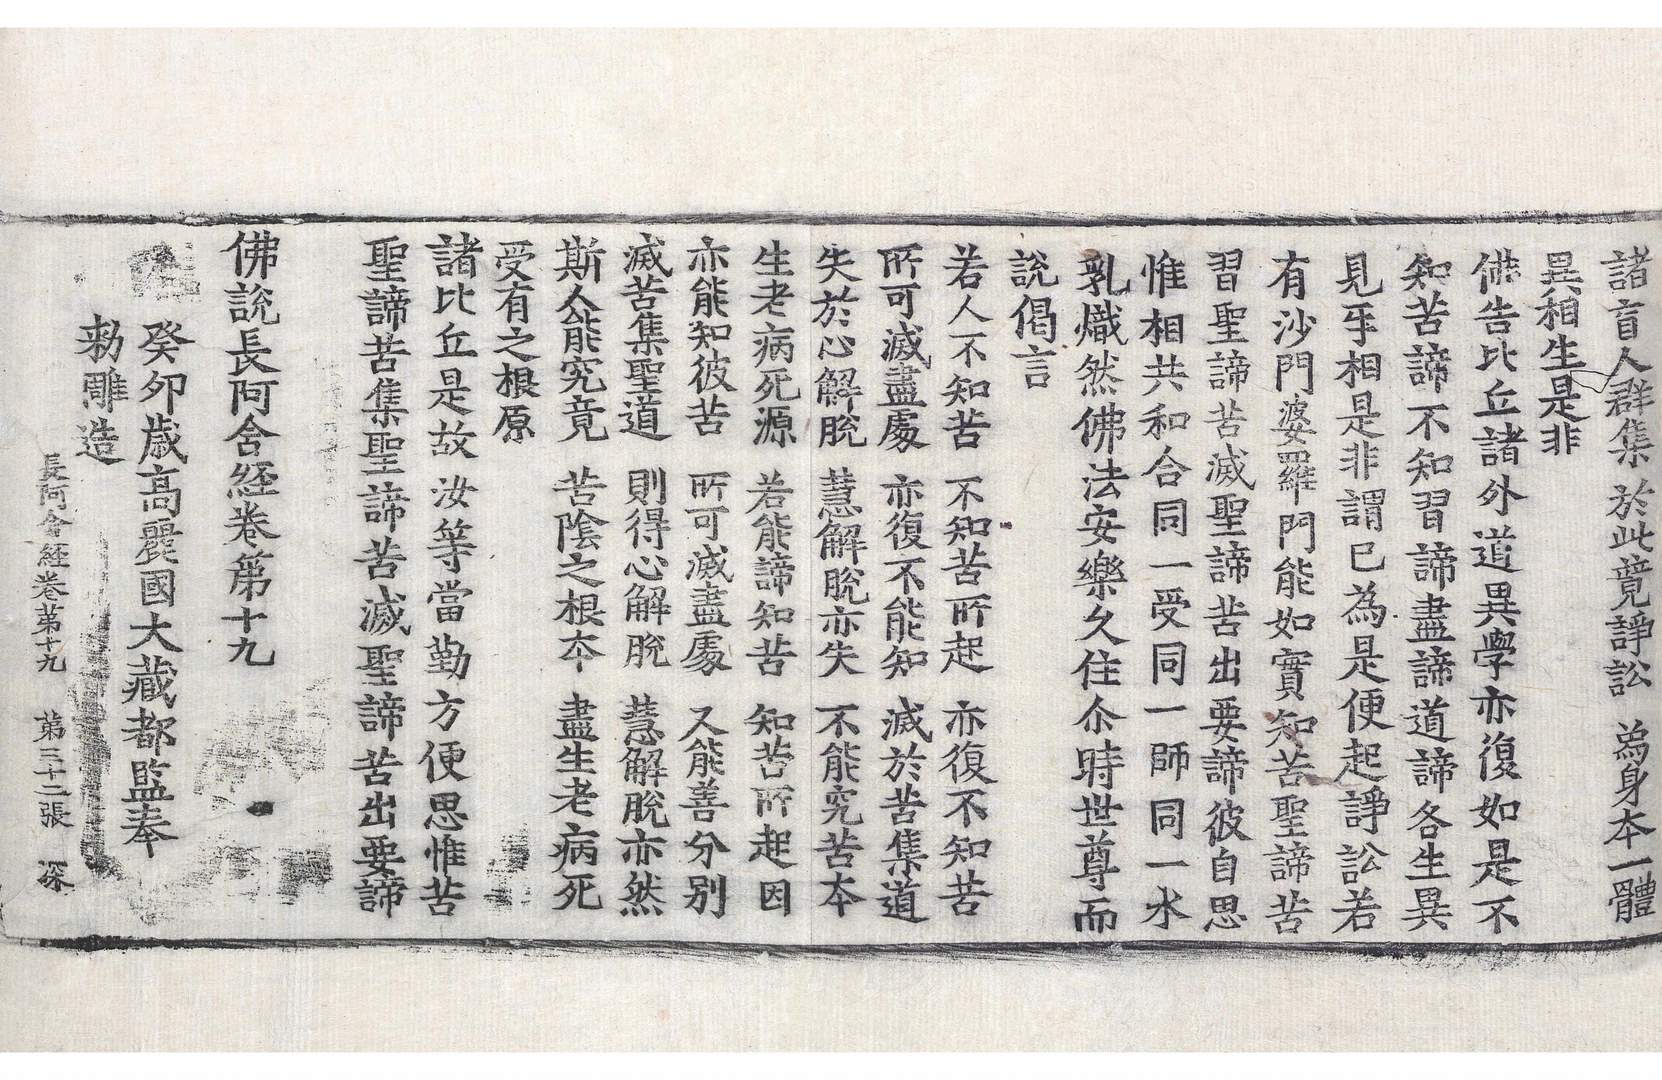 諸盲人群集　於此竟諍訟　為身本一體
異相生是非
佛告比丘諸外道異學亦復如是不
知苦諦不知習諦盡諦道諦各生異
見乎相是非謂已為是便起諍訟若
有沙門婆羅門能如實知苦聖諦苦
習聖諦苦滅聖諦苦出要諦彼自思
惟相共和合同一受同一師同一水
乳熾然佛法安樂久住尒時世尊而
說偈言
若人不知苦　不知苦所起　亦復不知苦
所可滅盡處　亦復不能知　滅於苦集道
失於心解脫　慧解脫亦失　不能究苦本
生老病死源　若能諦知苦　知苦所起因
亦能知彼苦　所可滅盡處　又能善分別
滅苦集聖道　則得心解脫　慧解脫亦然
斯人能究竟　苦陰之根本　盡生老病死
受有之根原
諸比丘是故汝等當勤方便思惟苦
聖諦苦集聖諦苦滅聖諦苦出要諦
佛說長阿含經卷第十九
癸卯歲高麗國大藏都監奉
勑雕造
長阿含經卷第十九　第三十二張　深